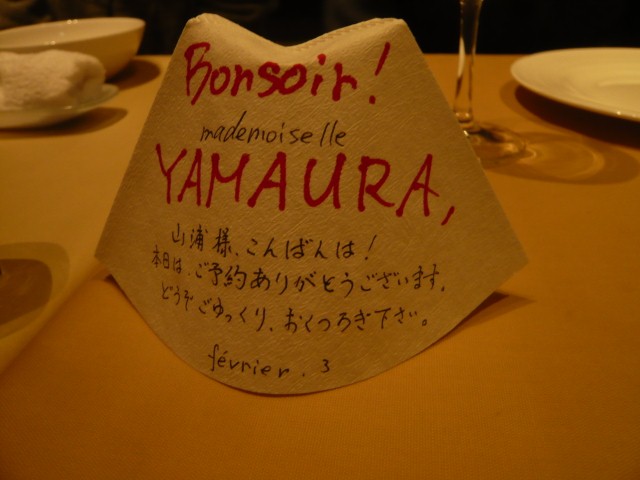 Bonsoir!
mademoiselle
YAMAURA,
山浦様、こんばんは!
本日は、ご予約ありがとうございます。
どうぞごゆっくり、おくつろぎ下さい。
février. 3